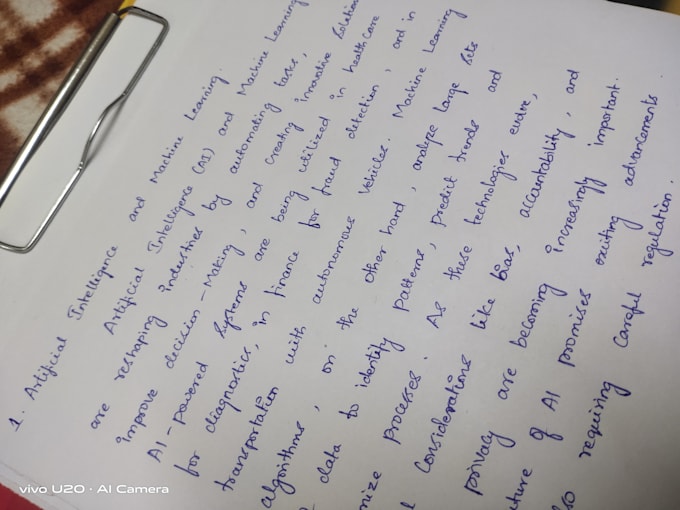 1. Artificial Intelligence and Machine Learning.
Artificial Intelligence (AI) and Machine Learning
are reshaping industries by automating tasks,
improve decision-Making, and creating innovative Solution
AI-powered systems are being utilized in healthcare
for diagnostics, in finance for fraud detection, and in
transportation with autonomous vehicles. Machine Learning
algorithms, on the other hand, analyze large sets
data to identify patterns, predict trends and
mize processes. As these technologies evolve,
considerations like bias, accountability, and
privacy are becoming increasingly important.
ture of AI promises exciting advancements
so requiring careful regulation.
vivo U20 · AI Camera